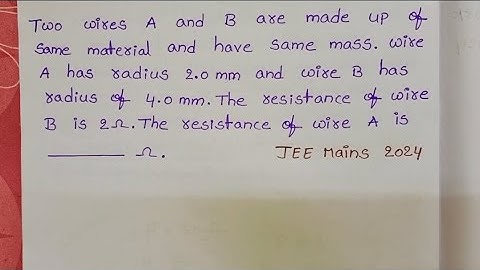 Two wires A and B are made up of
same material and have same mass. wire
A has radius 2.0 mm and wire B has
radius of 4.0 mm. The resistance of wire
B is 2Ω. The resistance of wire A is
______ Ω. JEE Mains 2024